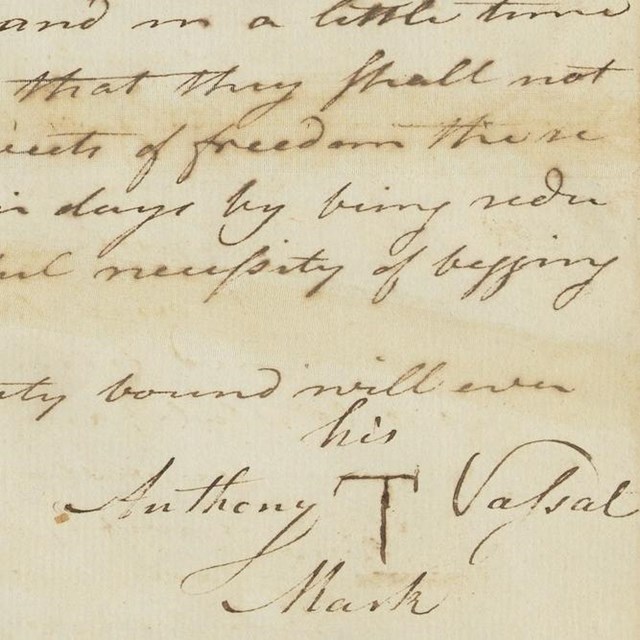 and in a little time
that they shall not
sweets of freedom there
days by being redu
necessity of begging
duty bound will ever
his
Anthony T Vassal
Mark